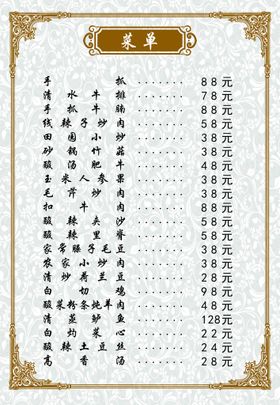 菜单
手抓 ........ 88元
清水牛排 ........ 78元
手抓牛腩 ........ 88元
线辣子炒肉 ........ 58元
田园小炒 ........ 38元
砂锅竹荪 ........ 38元
酸汤肥牛 ........ 48元
玉米人参果 ........ 38元
毛芹炒肉 ........ 38元
扣牛肉 ........ 88元
酸辣夹沙 ........ 58元
酸辣里脊 ........ 58元
家常臊子毛豆 ........ 38元
农家小炒肉 ........ 38元
清炒荷兰豆 ........ 28元
白切鸡 ........ 98元
酸菜粉条炖羊肉 ........ 48元
清蒸鲈鱼 ........ 128元
白灼菜心 ........ 22元
酸辣土豆丝 ........ 24元
高香汤 ........ 28元